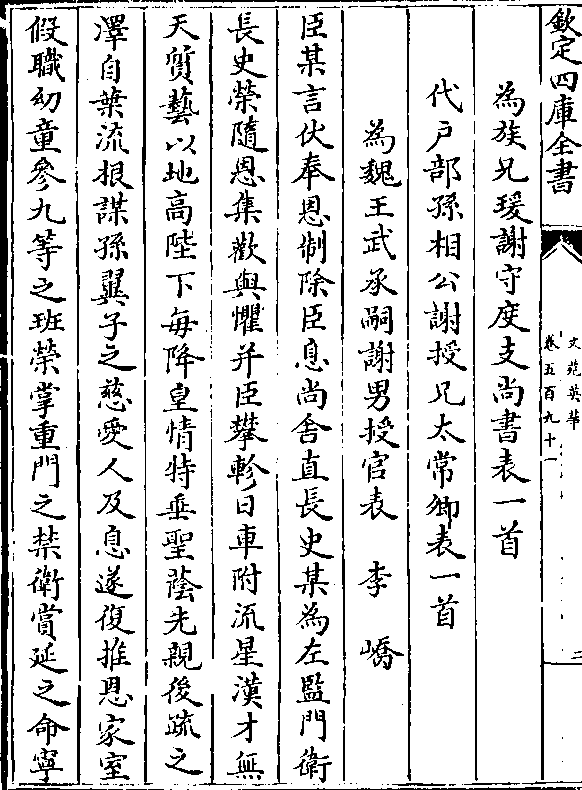 欽定四庫全書
文苑英華
卷五百九十一
二
為族兄瑗謝守度支尚書表一首
代戸部孫相公謝授兄太常卿表一首
為魏王武承嗣謝男授官表 李嶠
臣某言伏奉恩制除臣息尚舍直長史某為左監門衛
長史榮隨恩集歡與懼并臣攀軫日車附流星漢才無
天質藝以地高陛下每降皇情特垂聖蔭先親後疏之
澤自葉流根謀孫翼子之慈愛人及息遂復推恩家室
假職幼童參九等之班榮掌重門之禁衛賞延之命寧